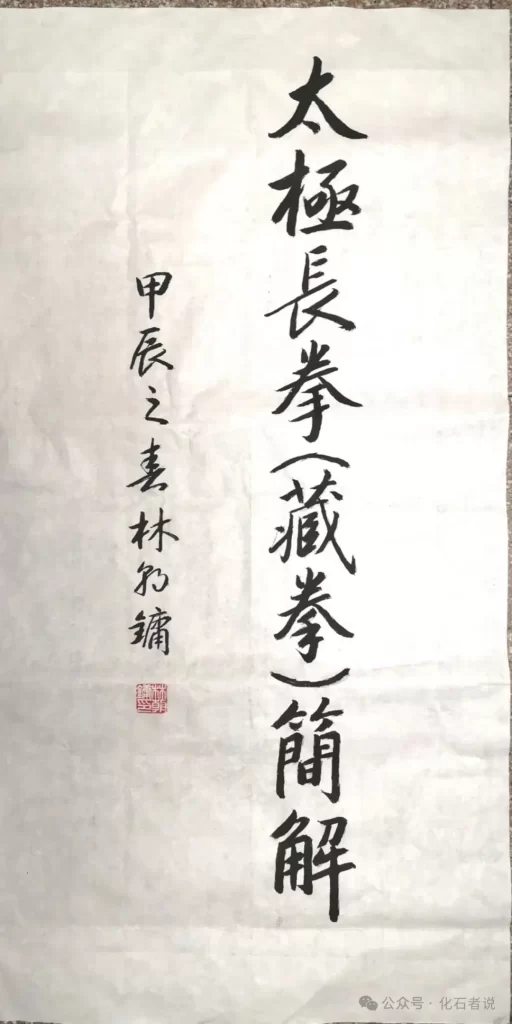 太極長拳（藏拳）簡解
甲辰之春林乃鏞
公众号·化石者说